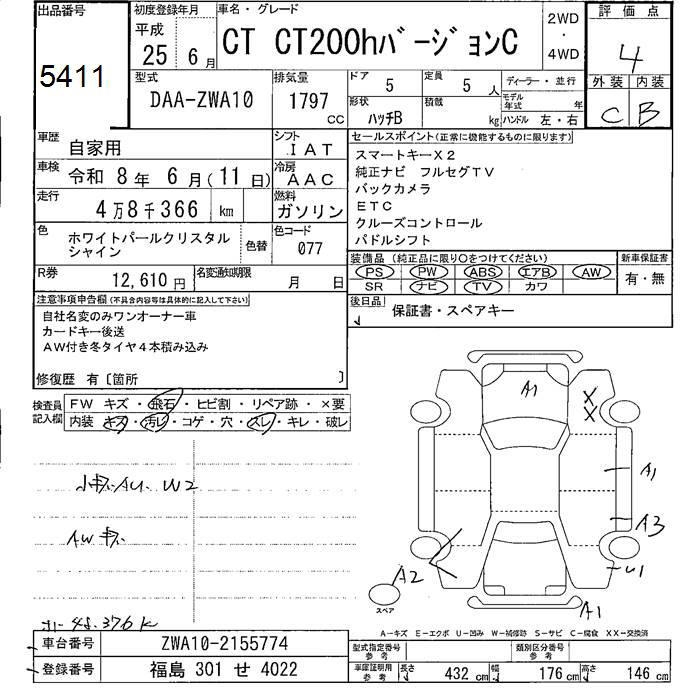 出品番号
5411
初度登録年月
平成
25 6月
車名・グレード
CT CT200hバージョンC
2WD
・
4WD
評価点
4
外装 内装
C B
型式
DAA-ZWA10
排気量
1797
CC
ドア 5
定員 5 人
形状 ハッチB
積載 kg
ディーラー・並行
モデル年式 年
ハンドル 左・右
車歴 自家用
シフト IAT
車検 令和 8年 6月(11日)
冷房 AAC
走行 4万8千366 km
燃料 ガソリン
色 ホワイトパールクリスタル
シャイン
色替
色コード 077
R券 12,610円
名変通知期限 月 日
セールスポイント(正常に機能するものに限ります)
スマートキーX2
純正ナビ フルセグTV
バックカメラ
ETC
クルーズコントロール
パドルシフト
装備品 (純正品に限り○をつけてください)
PS PW ABS エアB AW
SR ナビ TV カワ
新車保証書
有・無
後日品
保証書・スペアキー
注意事項申告欄(不具合内容等は具体的に記入して下さい)
自社名変のみワンオーナー車
カードキー後送
AW付き冬タイヤ4本積み込み
修復歴 有〔箇所 〕
検査員記入欄
FW キズ・飛石・ヒビ割・リペア跡・×要
内装 キズ・汚れ・コゲ・穴・スレ・キレ・破レ
小キズ.A4. W2
AWキズ.
48.376K
A1
X
X
A1
A3
U1
A2
A1
スペア
A-キズ E-エクボ U-凹み W-補修跡 S-サビ C-腐食 XX-交換済
車台番号 ZWA10-2155774
登録番号 福島 301 せ 4022
型式指定番号 参考
類別区分番号 参考
車庫証明用 参考
長さ 432 cm
幅 176 cm
高さ 146 cm